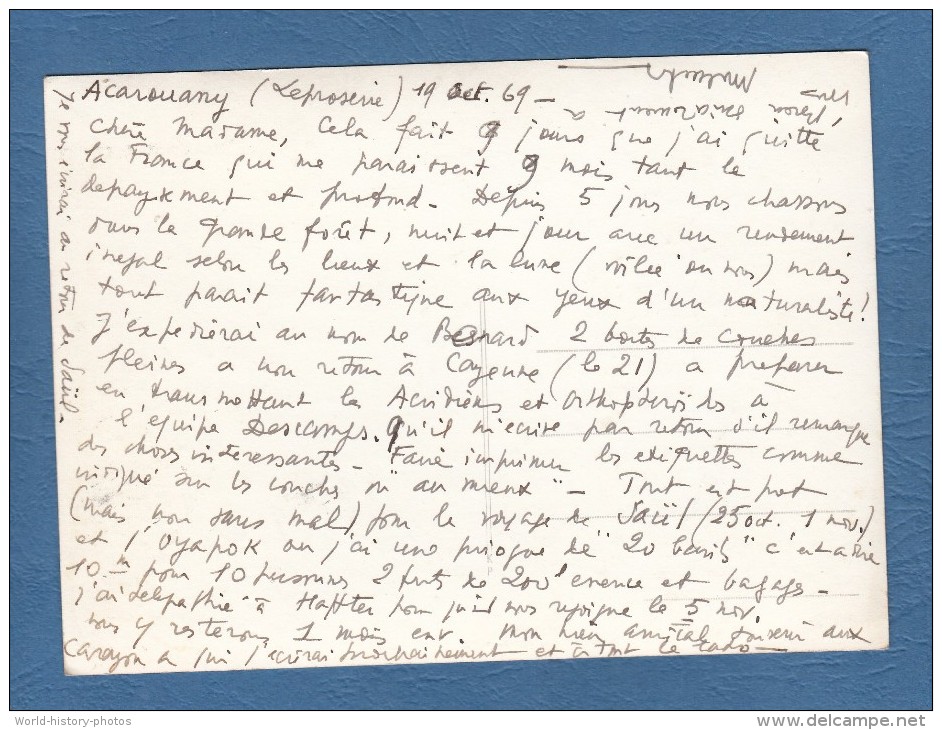 Acarouany (Léproserie) 19 Oct. 69 -
Chère Madame, Cela fait 9 jours que j'ai quitté
la France qui me paraissent 9 mois tant le
dépaysement est profond - Depuis 5 jours nous chassons
dans la grande forêt, nuit et jour avec un rendement
inégal selon les lieux et la lune (voilée ou non) mais
tout parait fantastique aux yeux d'un naturaliste!
J'expédierai au nom de Besnard 2 boites de couches
pleines a mon retour à Cayenne (le 21) a préparer
en transmettant les Acridiens et Orthoptéroïdes à
l'équipe Descamps. Qu'il m'écrive par retour s'il remarque
des choses intéressantes - Faire imprimer les étiquettes comme
indiqué sur les couches ou "au mieux" - Tout est prêt
(mais non sans mal) pour le voyage de Saül (25 oct. 1 nov.)
et l'Oyapok ou j'ai une pirogue de "20 barils" c'est a dire
10 m pour 10 personnes 2 futs de 200 l essence et bagages -
j'ai télégraphié à Haffter pour qu'il nous rejoigne le 5 nov.
nous y resterons 1 mois env. Mon bien amical souvenir aux
Carayon a qui j'écrirai prochainement et à tout le labo -
Je vous écrirai au retour de Saül.
World-history-photos
http://www.delcampe.net